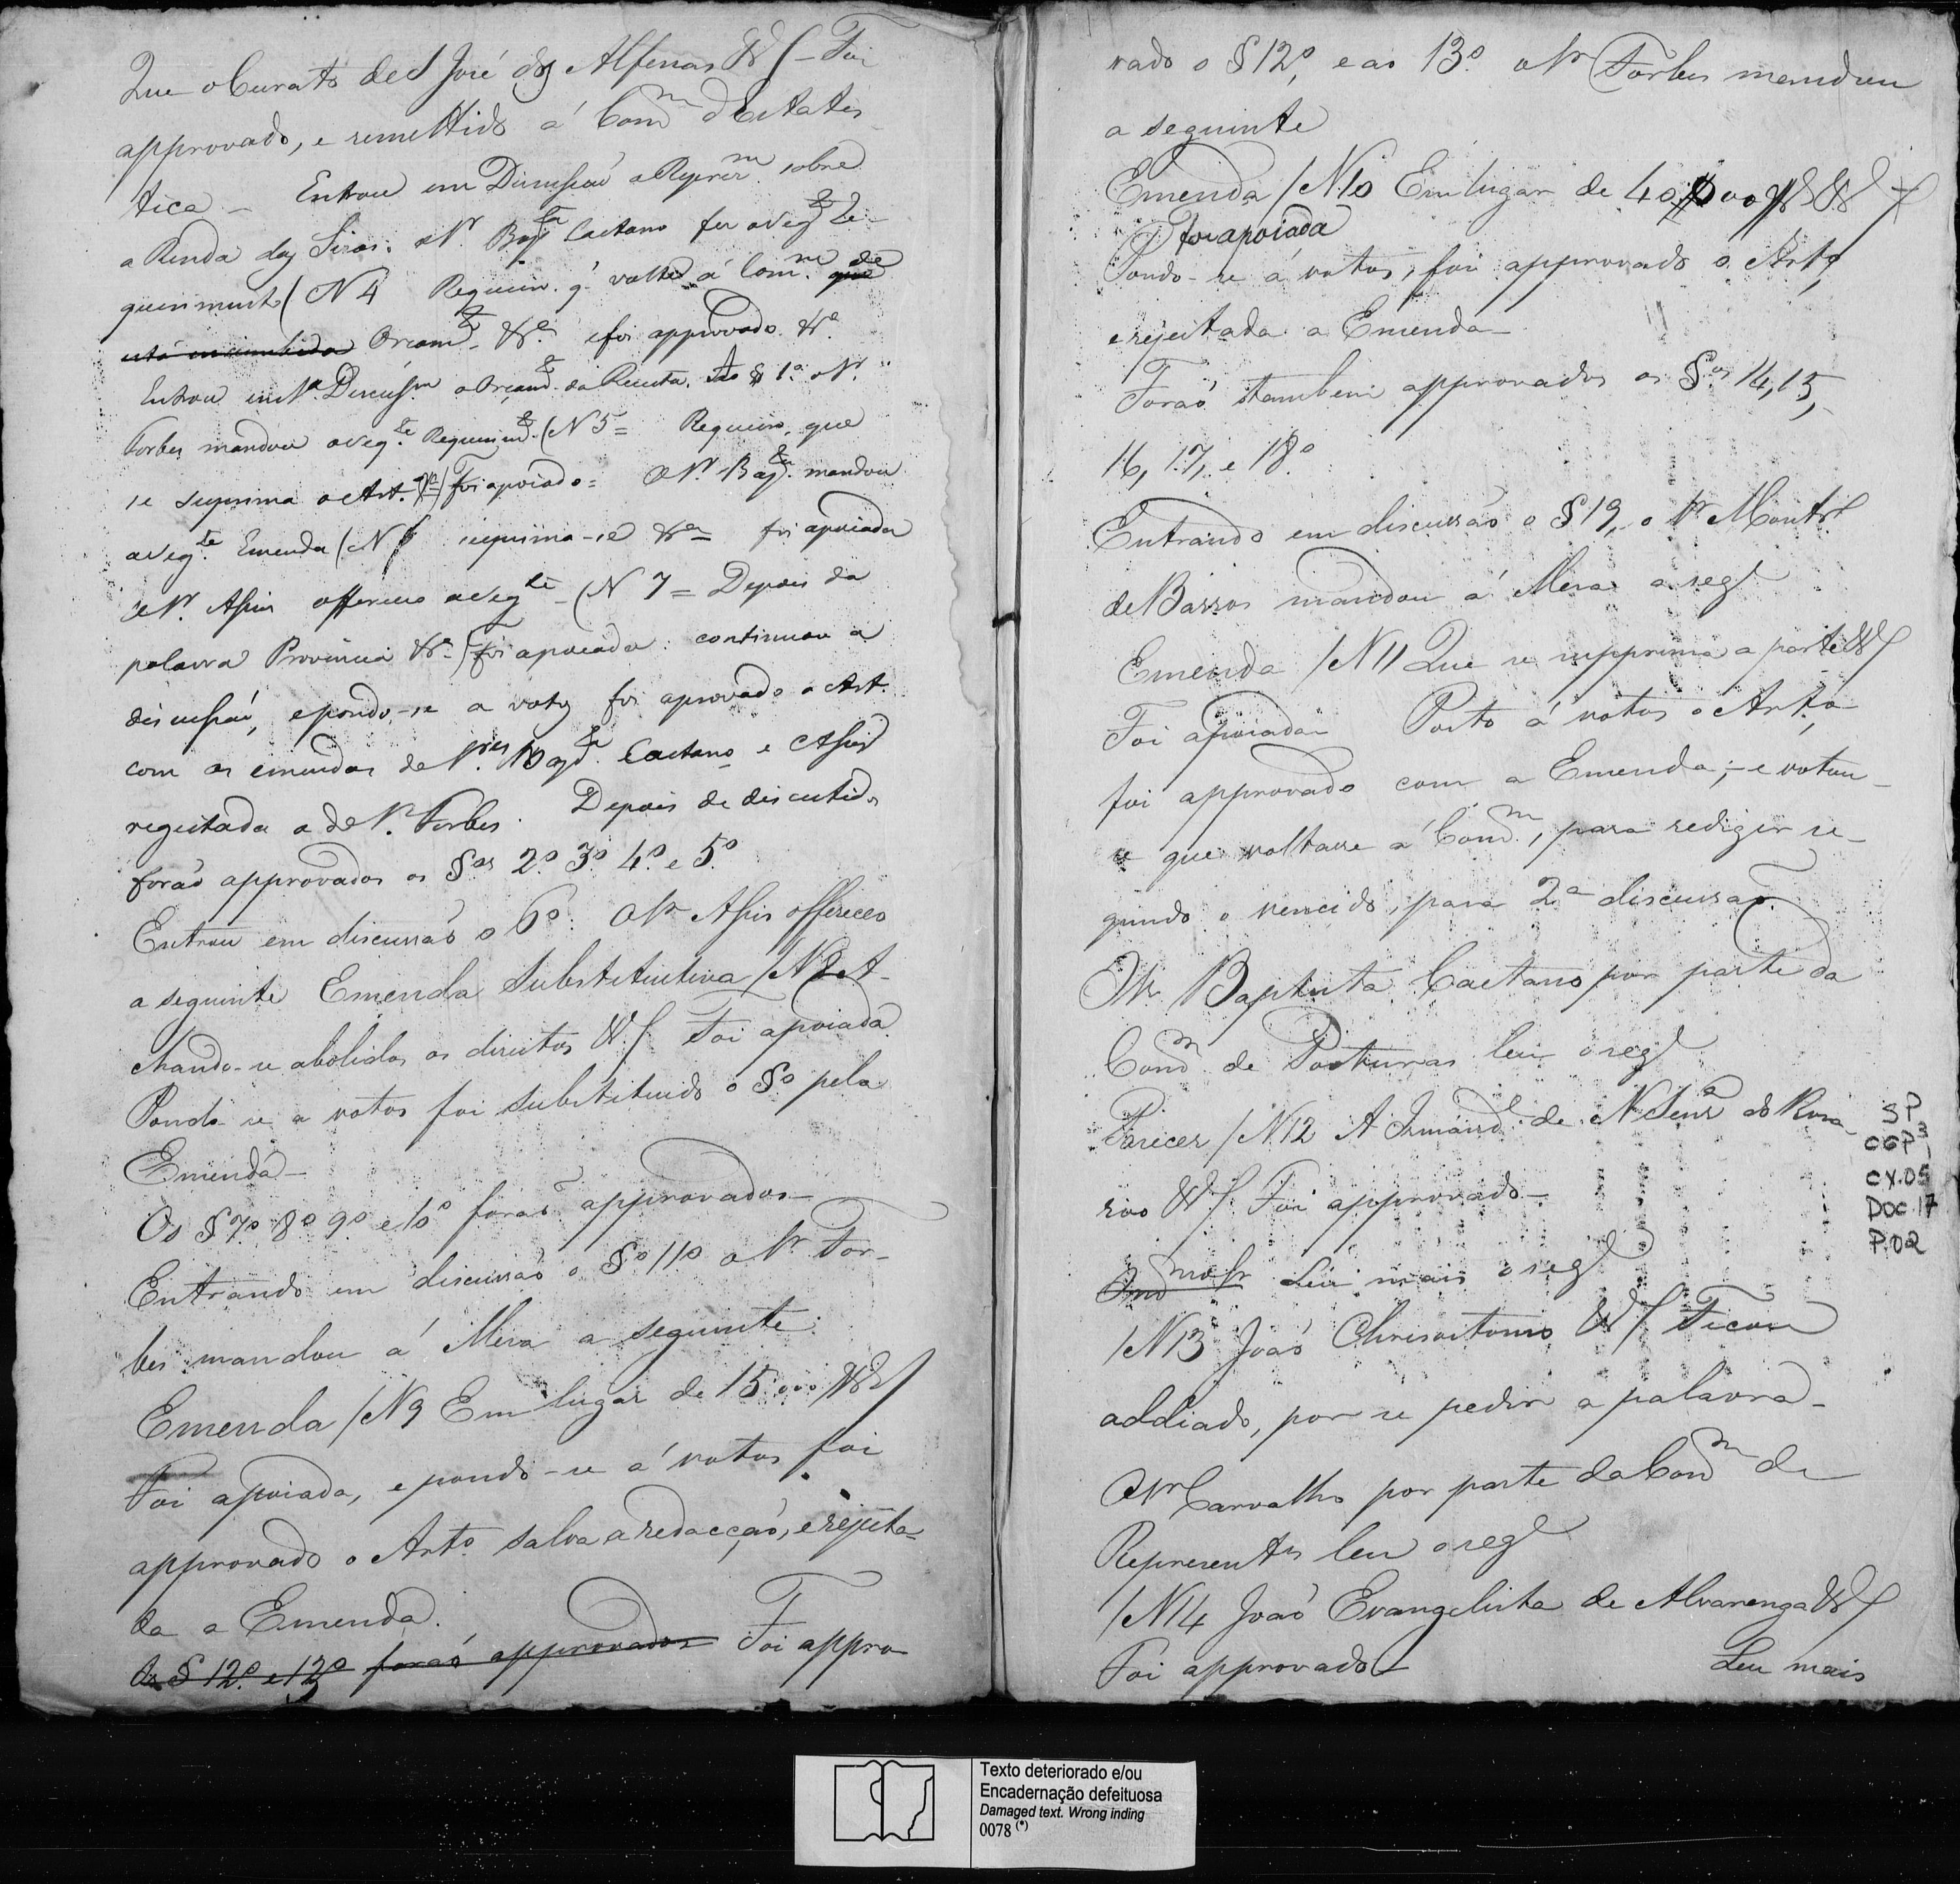 Que o Curato de S José dos Alfenas &/ - Foi
approvado, e remettido á Comm d'Estatis
tica - Entrou em Discussaõ a Reprezm sobre
a Renda das Sizas. o Sr. Bapta Caetano fez o seg.te Re-
querimento (N 4 Requeiro q. volte á Comm. de
está incumbida Orcamto. &a. e foi approvado &a.
Entrou em Discussm o Orcamto da Receita. Ao § 1º o Sr.
Forbes mandou o seg.te Requerimto. (N 5 = Requeiro, que
se suprima o Art. &a) foi apoiado = O Sr. Bapta. mandou
a seg.te Emenda (N 6 suprima-se &a = foi apoiada
o Sr. Assis offereceo a seg.te - (N 7 = Depois da
palavra Provincia &a) foi apoiada: continuou a
discussaõ, e pondo-se a votos foi aprovado o Art.
com as emendas de Srs. Bapta. Caetano e Assis
regeitada a de Sr. Forbes. Depois de discutidos
foraõ approvados os §os 2º 3º 4º e 5º
Entrou em discussaõ o 6º. O Sr Assis offereceo
a seguinte Emenda Substitutiva /N 8 A-
chando-se abolidos os direitos &/ Foi apoiada.
Pondo-se a votos foi substituido o §º pela
Emenda -
Os § 7º 8º 9º e 10º foraõ approvados -
Entrando em discussaõ o §º 11º o Sr. For-
bes mandou á Mesa a seguinte
Emenda /N 9 Em lugar de 15:000 &/
Foi apoiada, e pondo-se á votos foi
approvado o Artº. salva a redacçaõ, e rejeita-
da a Emenda.
Os § 12º. e 13º foraõ approvados Foi appro
vado o § 12º, e ao 13º. o Sr Forbes mandou
a seguinte
Emenda /N. 10 Em lugar de 40,000 &/
Foi apoiada
Pondo-se á votos, foi approvado o Artº,
e rejeitada a Emenda -
Foraõ tambem approvados os §os 14, 15,
16, 17, e 18º.
Entrando em discussaõ o § 19, o Sr Montr.
de Barros mandou á Mesa a seg.
Emenda /N 11 Que se supprima a parte &/
Foi apoiada Posto á votos o Artº,
foi approvado com a Emenda; - e votou-
se que voltasse á Comm, para redigir se-
gundo o vencido, para 2ª discussaõ.
O Sr Baptista Caetano por parte da
Comm de Posturas leu o seg.
Parecer /N. 12 A Irmand.e de N Senrª do Rosa-
rio &/ Foi approvado -
O mmo Sr Leu mais o seg.
/N 13 Joaõ Chrisostomo &/ Ficou
addiado, por se pedir a palavra -
O Sr Carvalho por parte da Comm de
Represent.es leu o seg.
/N 14 Joaõ Evangelista de Alvarenga &/
Foi approvado - Leu mais
SP
CGP 3
CX.05
DOC.17
P.02
Texto deteriorado e/ou
Encadernação defeituosa
Damaged text. Wrong inding
0078 (*)